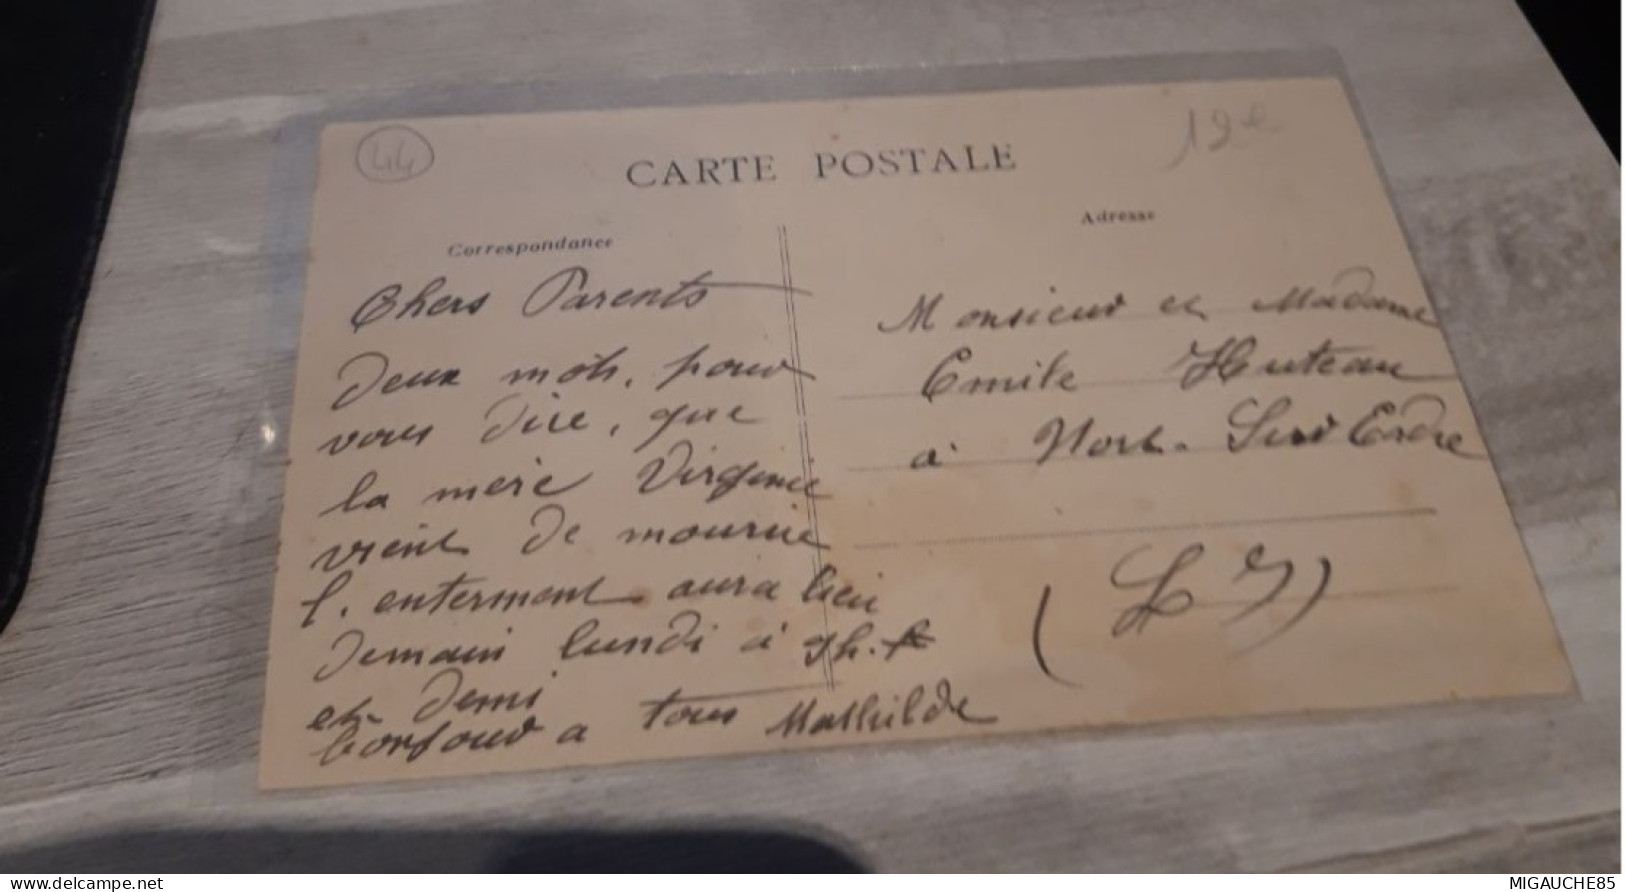 44
19€
CARTE POSTALE
Correspondance
Adresse
Chers Parents
Deux mots, pour
vous dire, que
la mère Virginie
vient de mourire
l'enterment aura lieu
demain lundi à 9h.
et demi
bonjour a tous Mathilde
Monsieur et Madame
Emile Huteau
à Nort-Sur Erdre
(L I)
MIGAUCHE85